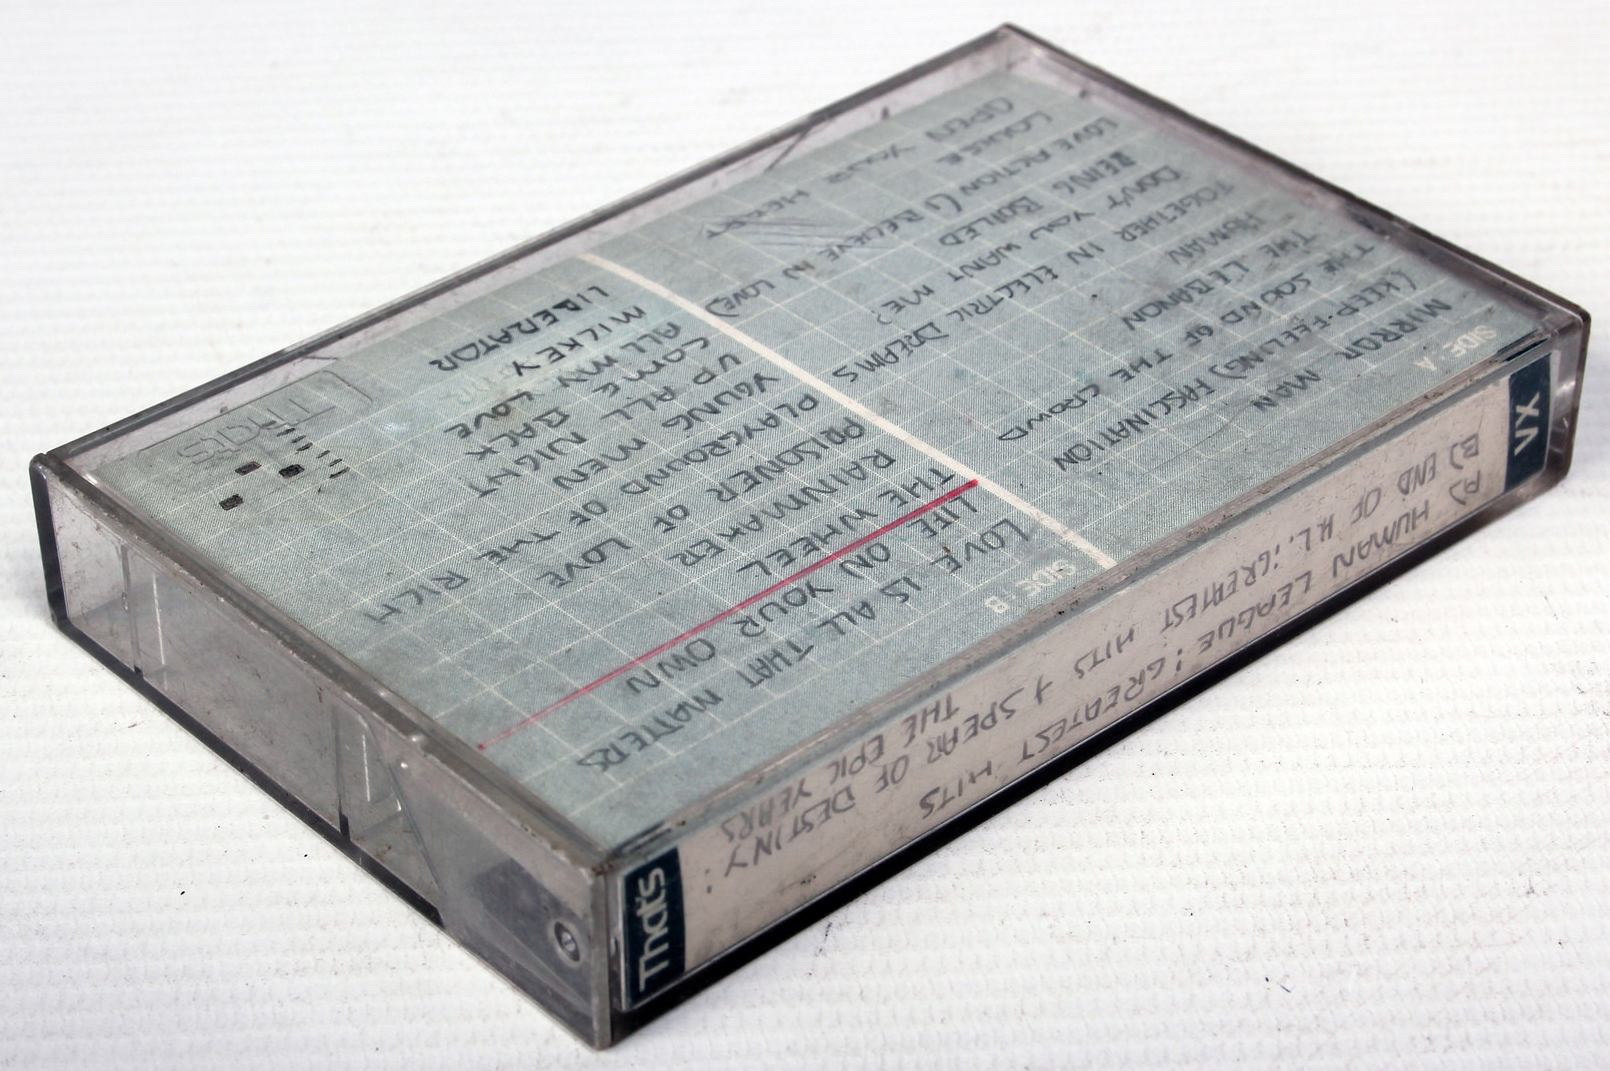 SIDE : A
MIRROR MAN
(KEEP-FEELING) FASCINATION
THE SOUND OF THE CROWD
THE LEBANON
HUMAN
TOGETHER IN ELECTRIC DREAMS
DON'T YOU WANT ME?
BEING BOILED
LOVE ACTION (I BELIEVE IN LOVE)
LOUISE
OPEN YOUR HEART
SIDE : B
LOVE IS ALL THAT MATTERS
LIFE ON YOUR OWN
THE WHEEL
RAINMAKER
PRISONER OF LOVE
PLAYGROUND OF THE RICH
YOUNG MEN
UP ALL NIGHT
COME BACK
ALL MY LOVE
MILKEY
LIBERATOR
That's
VX
A) HUMAN LEAGUE : GREATEST HITS
B) END OF H.L. : GREATEST HITS + SPEAR OF DESTINY :
THE EPIC YEARS
That's